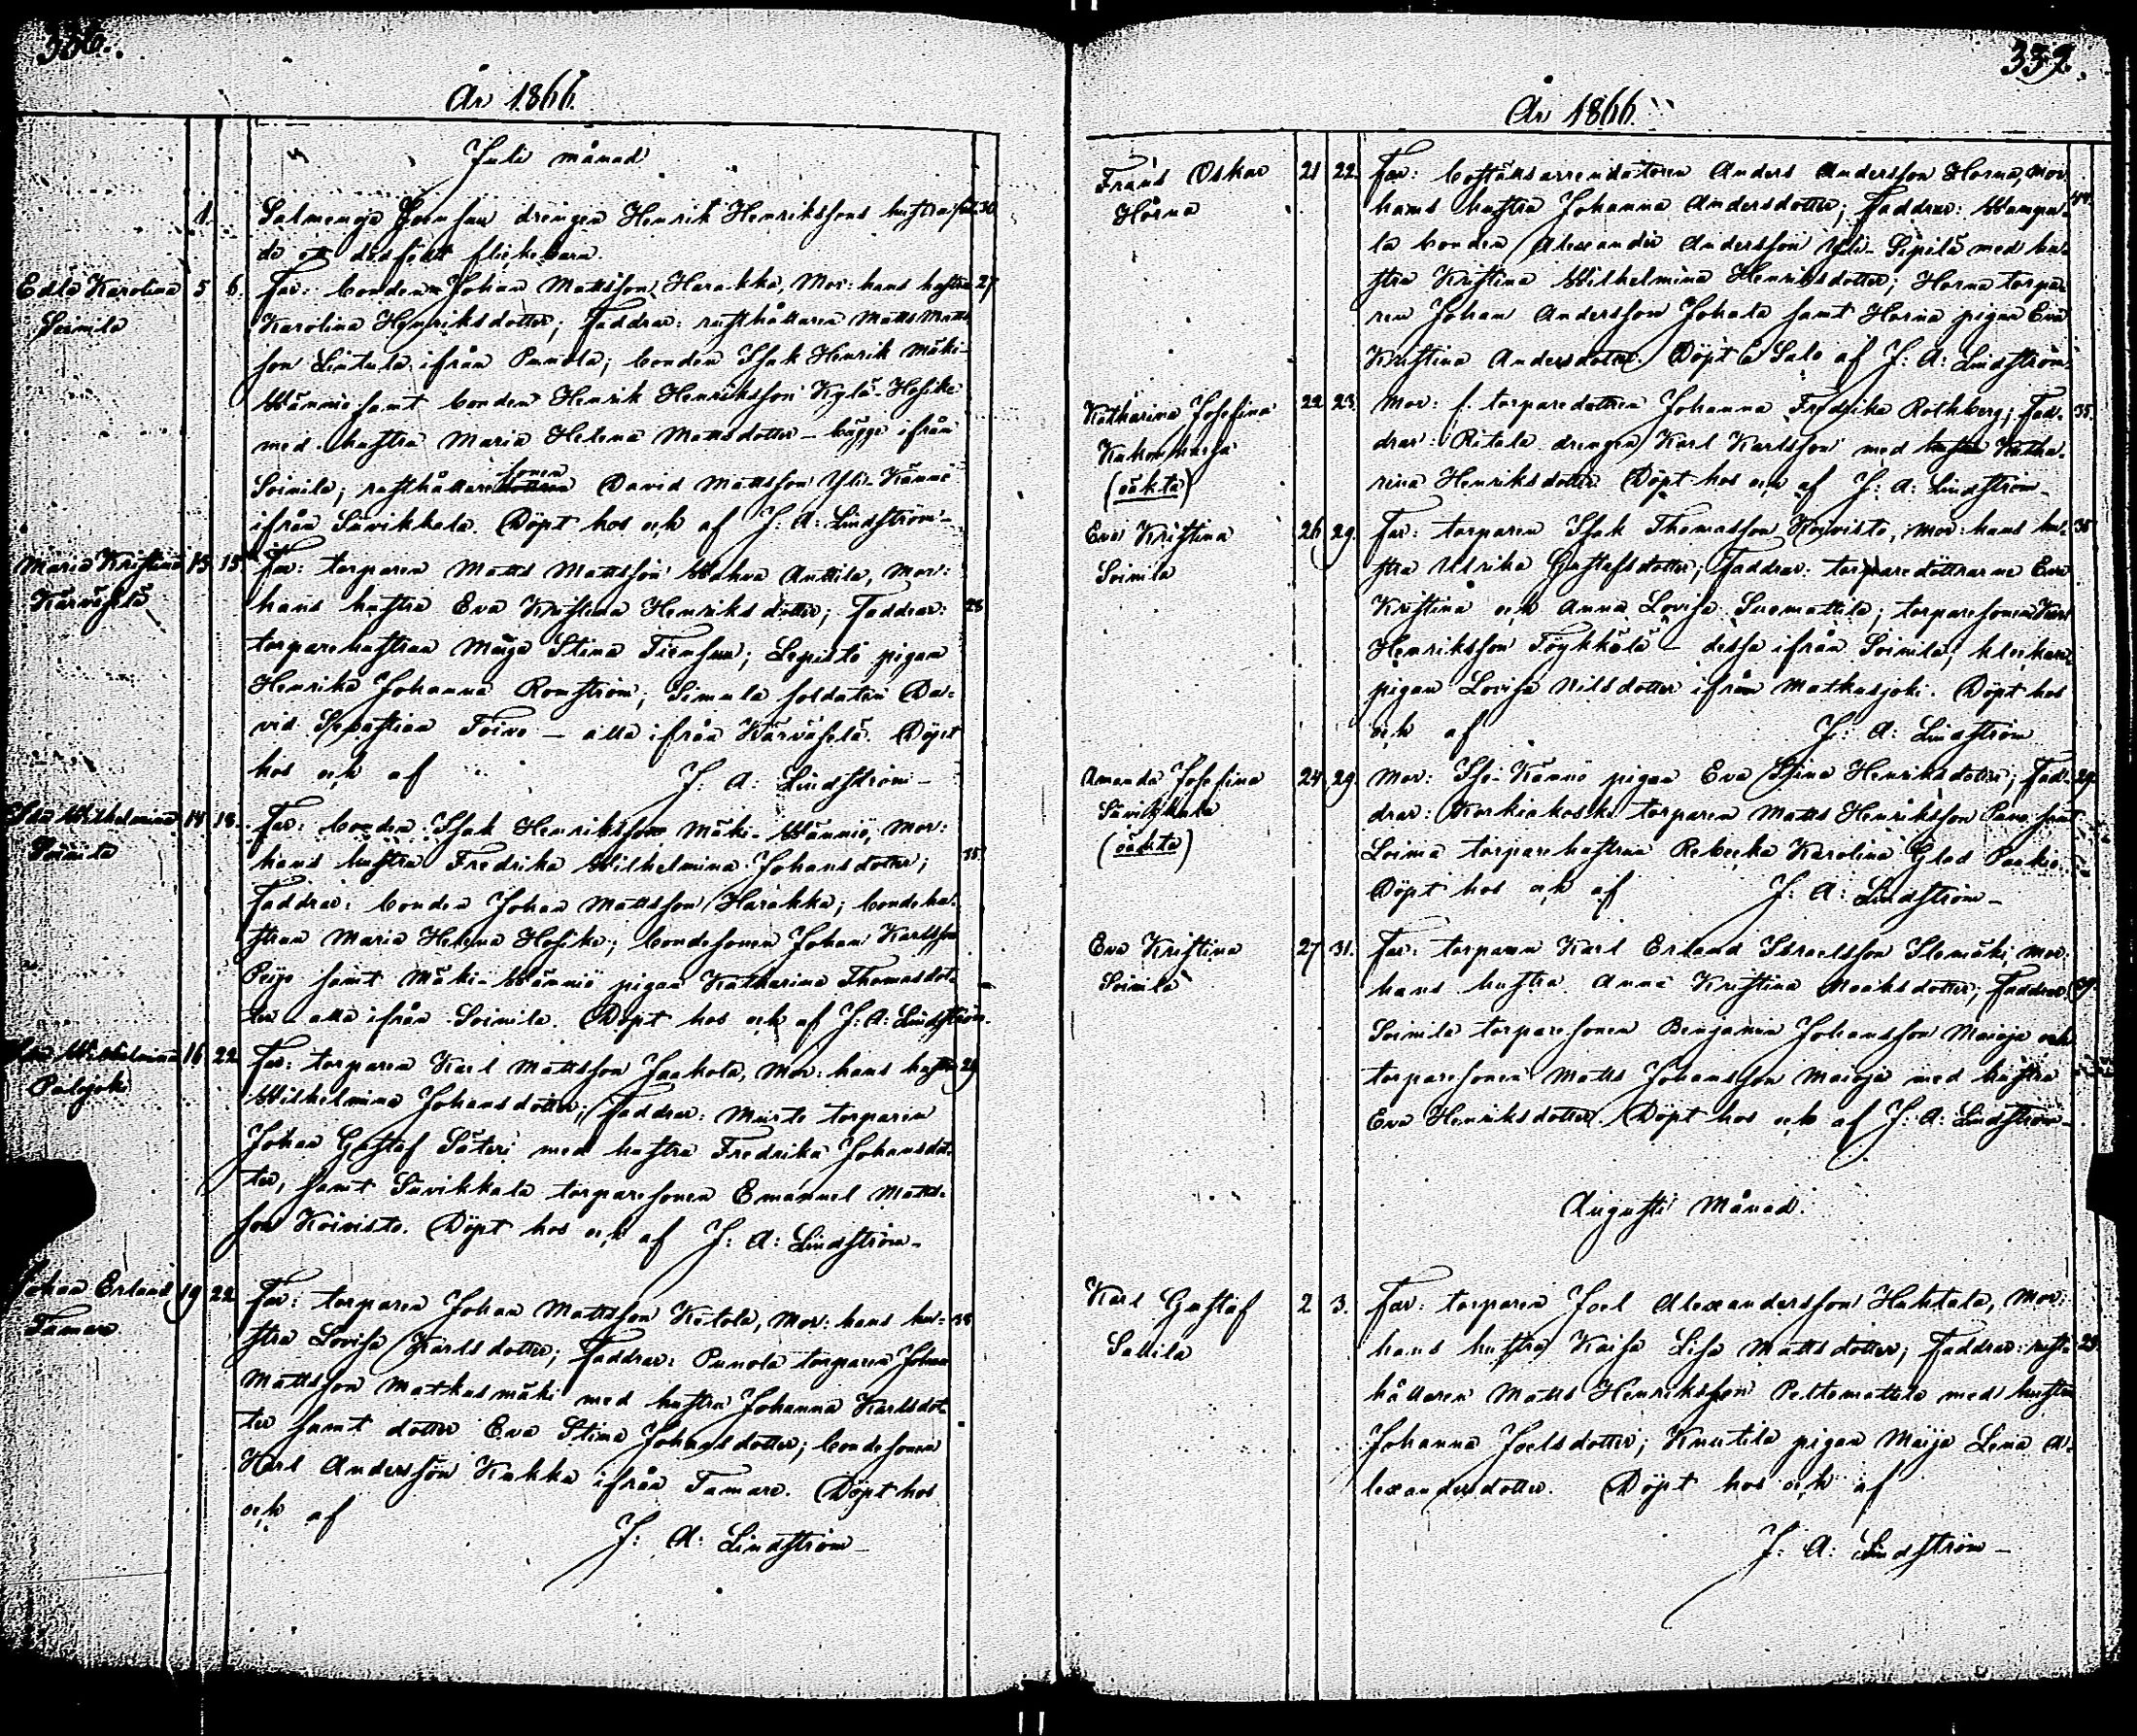 336.
År 1866.
Juli månad
1. Salmenoja drengen Henrik Henrikssons hustru föd- 30
de ett dödfödt flickebarn.
Edla Karolina 5 6. Far: bonden Johan Mattsson Harakka, Mor: hans hustru 27
Soinila Karolina Henriksdotter; Faddrar: rusthållaren Matts Matts-
son Lintula ifrån Punola; bonden Isak Henrik Mäki-
Männiö samt bonden Henrik Henriksson Kylä-Hosike
med hustru Maria Helena Mattsdotter – bägge ifrån
Soinila; rusthållare sonen David Mattsson Yli-Kännö
ifrån Suvikkala. Döpt hos och af J: A: Lindström –
Maria Kristina 13 15 Far: torparen Matts Mattsson Wahva Anttila, Mor:
Kärväselä hans hustru Eva Kristina Henriksdotter; Faddrar: 28
torparehustrun Maija Stina Tiensuu; Lepistö pigan
Henrika Johanna Romström; Simula soldaten Da-
vid Sebastian Toivo – alla ifrån Kärväselä. Döpt
hos och af J: A: Lindström –
Ida Wilhelmina 14 18. Far: bonden Isak Henriksson Mäki-Männiö, Mor:
Soinila hans hustru Fredrika Wilhelmina Johansdotter; 35
Faddrar: bonden Johan Mattsson Harakka; bondehu-
strun Maria Helena Hosike; bondesonen Johan Karlsson
Peijo samt Mäki-Männiö pigan Katharina Thomasdot-
ter – alla ifrån Soinila. Döpt hos och af J: A: Lindström.
Ida Wilhelmina 16 22 Far: torparen Karl Mattsson Jaakola, Mor: hans hustru 29
Palojoki Wilhelmina Johansdotter; Faddrar: Murto torparen
Johan Gustaf Säteri med hustru Fredrika Johansdot-
ter, samt Suvikkala torparesonen Emanuel Matts-
son Koivisto. Döpt hos och af J: A: Lindström –
Johan Erland 19 22 Far: torparen Johan Mattsson Ketola, Mor: hans hu- 38
Tamare stru Lovisa Karlsdotter; Faddrar: Punola torparen Johan
Mattsson Matkusmäki med hustru Johanna Karlsdot-
ter samt dotter Eva Stina Johansdotter; bondesonen
Karl Andersson Kukka ifrån Tamare. Döpt hos
och af J: A: Lindström –
337.
År 1866.
Frans Oskar 21 22. Far: boställsarrendatoren Anders Andersson Horna, Mor:
Horna hans hustru Johanna Andersdotter; Faddrar: Wampu- 44.
la bonden Alexander Andersson Yli-Sipilä med hu-
stru Kristina Wilhelmina Henriksdotter; Horna torpa-
ren Johan Andersson Johala samt Horna pigan Eva
Kristina Andersdotter. Döpt å Salo af J: A: Lindström
Katharina Josefina 22 23. Mor: f. torparedottren Johanna Fredrika Rothberg; Fad- 35.
(oäkta) drar: Ritala drengen Karl Karlsson med hustru Katha-
rina Henriksdotter Döpt hos och af J: A: Lindström –
Eva Kristina 26 29. Far: torparen Isak Thomasson Koivisto, Mor: hans hu- 35
Soinila stru Ulrika Gustafsdotter; Faddrar: torparedöttrarne Eva
Kristina och Anna Lovisa Suomattila; torparesonen Karl
Henriksson Töykkälä – dessa ifrån Soinila;
pigan Lovisa Nilsdotter ifrån Matkusjoki. Döpt hos
och af J: A: Lindström
Amanda Josefina 24 29. Mor: Iso-Kännö pigan Eva Stina Henriksdotter; Fad- 29.
Suvikkala drar: Korkiakoski torparen Matts Henriksson Puna samt
(oäkta) Loima torparehustrun Rebecka Karolina Glad Paakio.
Döpt hos och af J: A: Lindström –
Eva Kristina 27 31. Far: torparen Karl Erland Israelsson Ilomäki, Mor:
Soinila hans hustru Anna Kristina Isaksdotter; Faddrar: 29.
Soinila torparesonen Benjamin Johansson Maioja och
torparesonen Matts Johansson Maioja med hustru
Eva Henriksdotter. Döpt hos och af J: A: Lindström –
Augusti Månad.
Karl Gustaf 2 3. Far: torparen Joel Alexandersson Huhtala, Mor:
Sallila hans hustru Kaisa Lisa Mattsdotter; Faddrar: rust- 28.
hållaren Matts Henriksson Peltomattila med hustru
Johanna Joelsdotter; Knutila pigan Maija Lena A-
lexandersdotter. Döpt hos och af
J: A: Lindström –